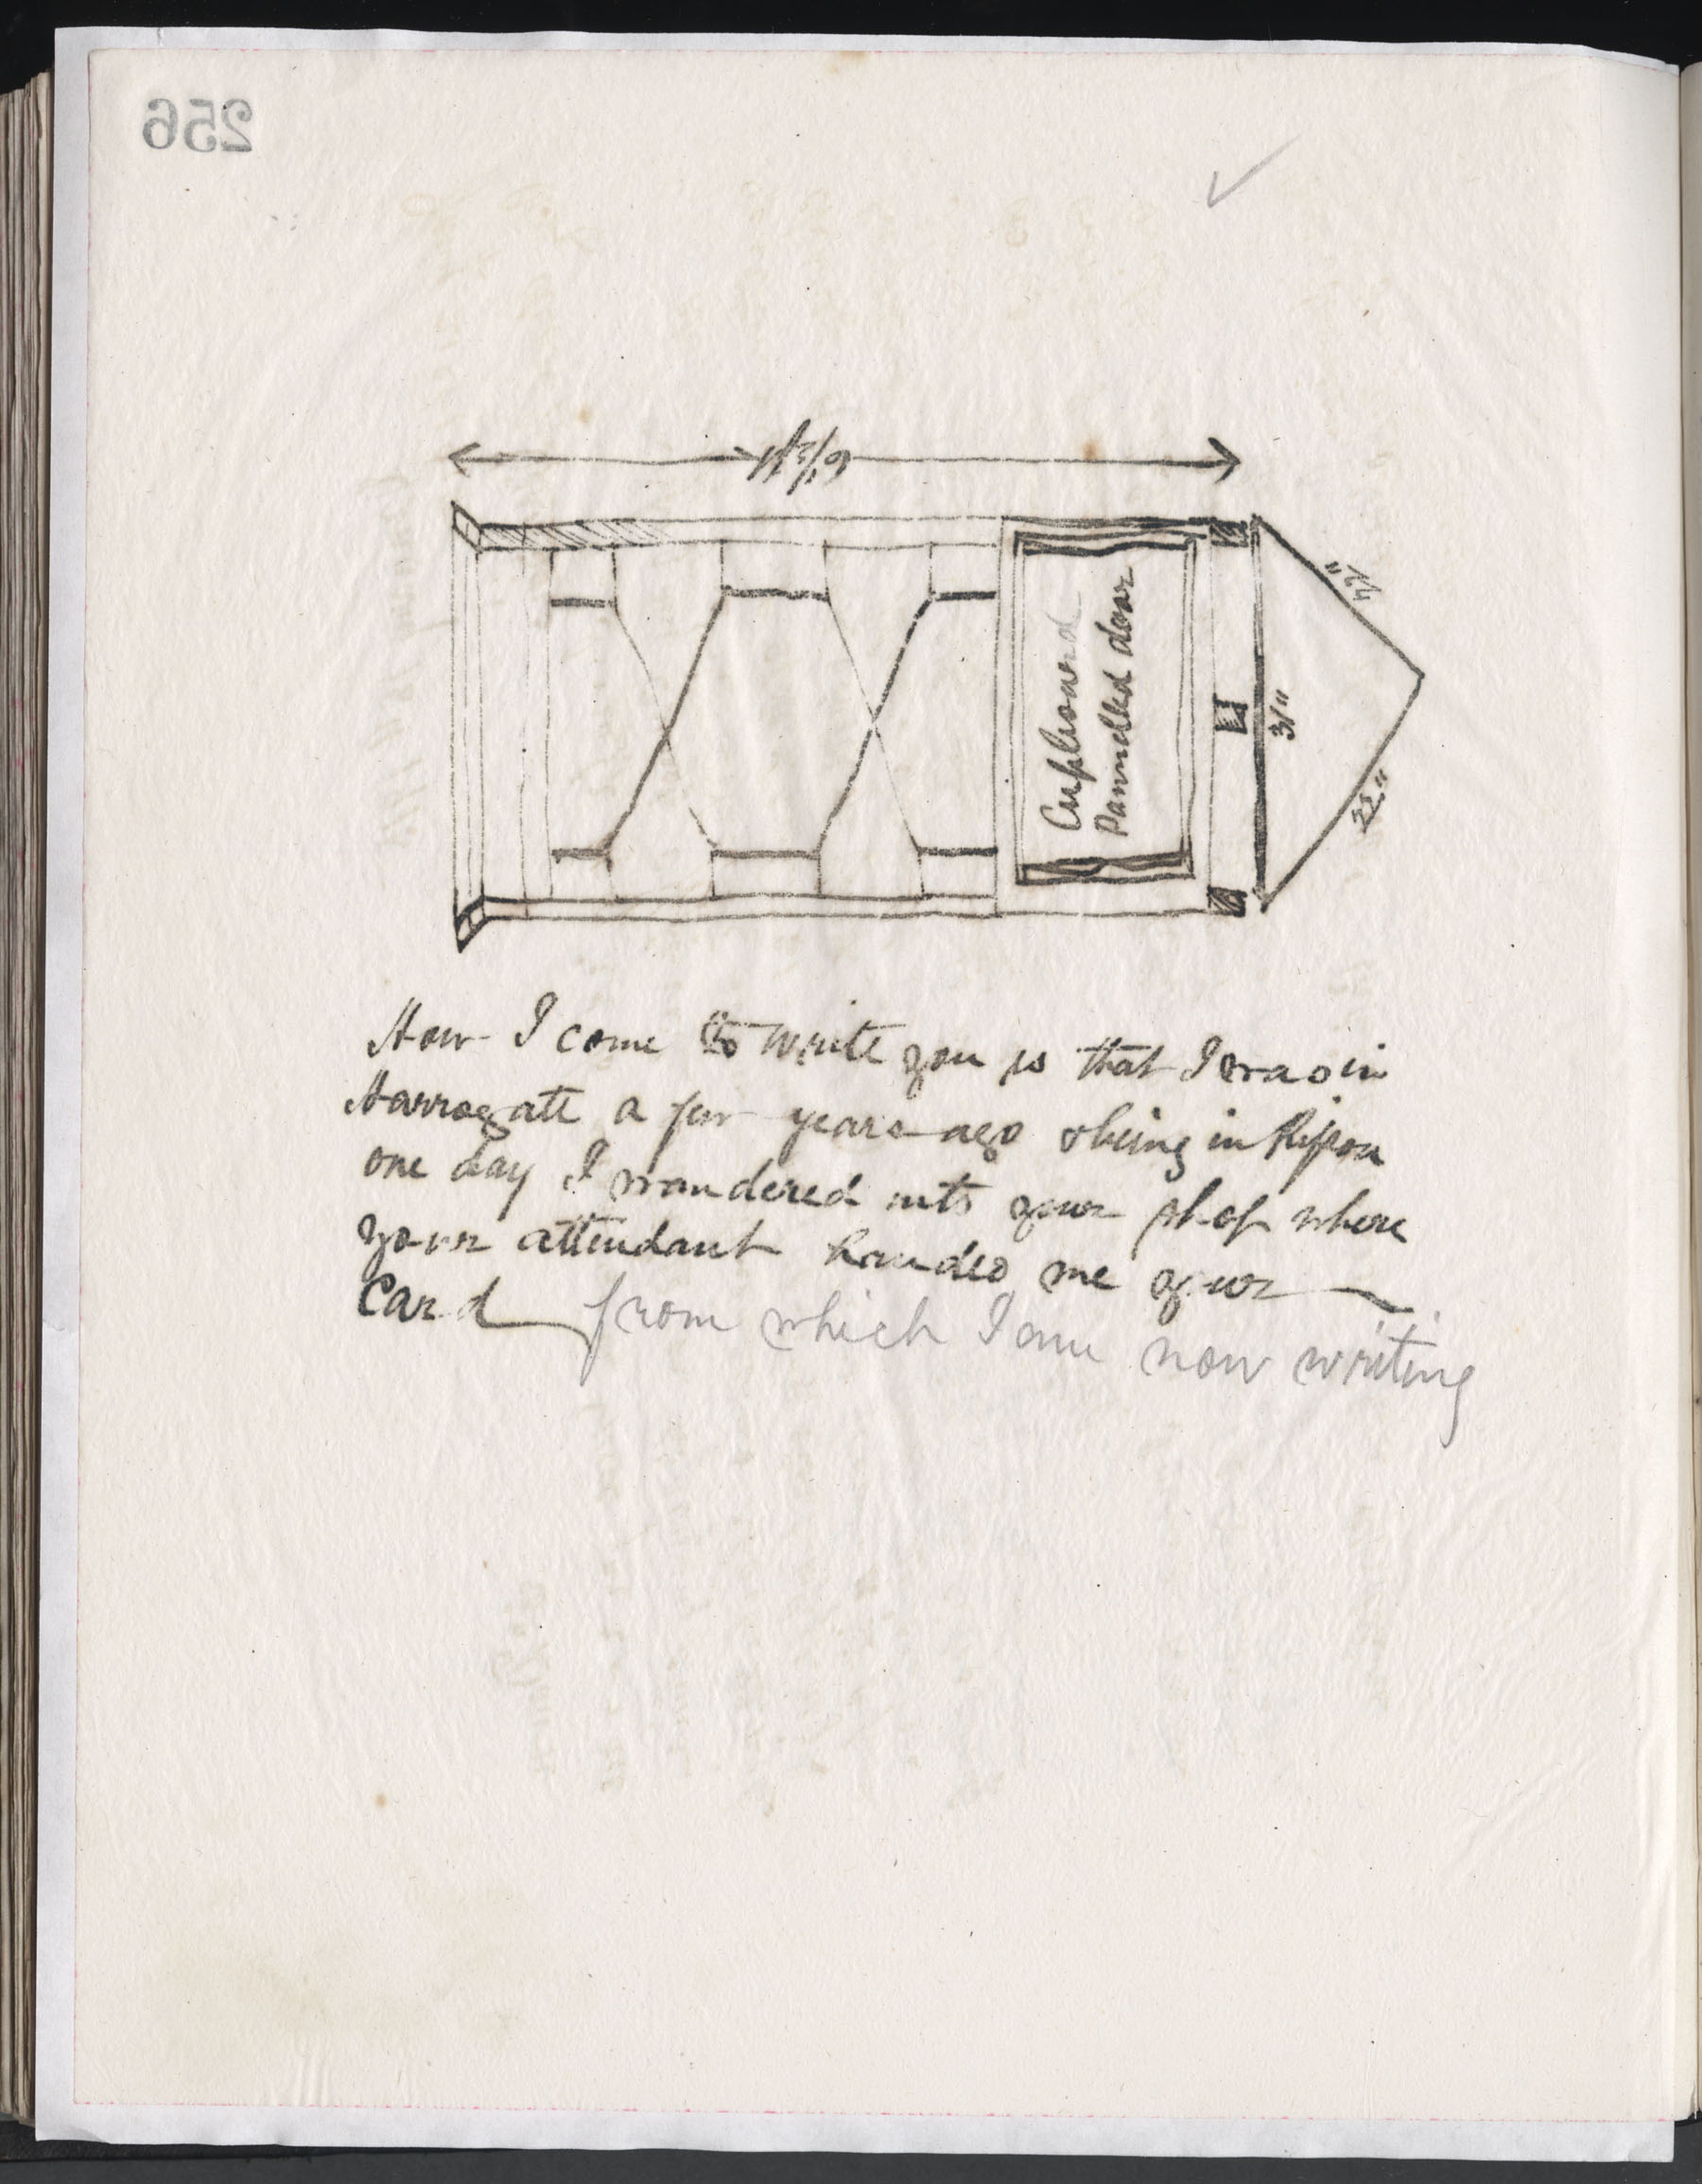 256
Cupboard
Pannelled door
31"
22"
How I come to write you is that I was in
Harrogate a few years ago & being in Ripon
one day I wandered into your shop where
your attendant handed me your
Card from which I am now writing